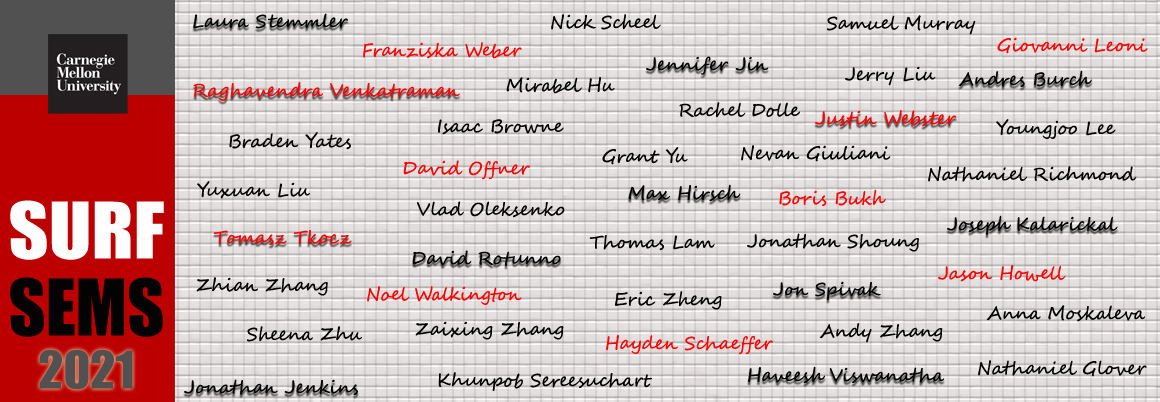 Carnegie
Mellon
University
SURF
SEMS
2021
Laura Stemmler
Nick Scheel
Samuel Murray
Franziska Weber
Giovanni Leoni
Jennifer Jin
Jerry Liu
Andres Burch
Raghavendra Venkatraman
Mirabel Hu
Rachel Dolle
Justin Webster
Youngjoo Lee
Isaac Browne
Braden Yates
Grant Yu
Nevan Giuliani
David Offner
Nathaniel Richmond
Yuxuan Liu
Max Hirsch
Boris Bukh
Vlad Oleksenko
Joseph Kalarickal
Tomasz Tkocz
Thomas Lam
Jonathan Shoung
David Rotunno
Jason Howell
Zhian Zhang
Noel Walkington
Eric Zheng
Jon Spivak
Anna Moskaleva
Sheena Zhu
Zaixing Zhang
Andy Zhang
Hayden Schaeffer
Nathaniel Glover
Jonathan Jenkins
Khunpob Sereesuchart
Haveesh Viswanatha